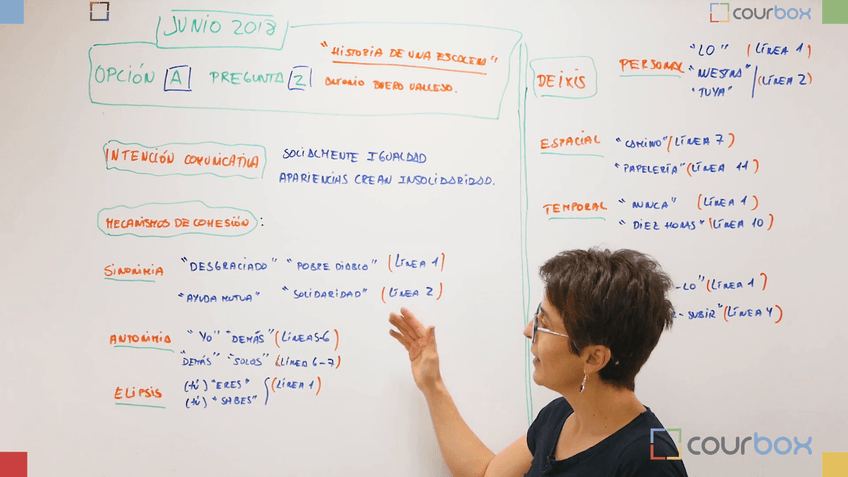 courbox
JUNIO 2018
OPCIÓN A PREGUNTA 2
"HISTORIA DE UNA ESCALERA"
ANTONIO BUERO VALLEJO.
INTENCIÓN COMUNICATIVA
SOCIALMENTE IGUALDAD
APARIENCIAS CREAN INSOLIDARIDAD.
MECANISMOS DE COHESIÓN:
SINONIMIA "DESGRACIADO" "POBRE DIABLO" (LÍNEA 1)
"AYUDA MUTUA" "SOLIDARIDAD" (LÍNEA 2)
ANTONIMIA "YO" "DEMÁS" (LÍNEAS-6)
"DEMÁS" "SOLOS" (LÍNEA 6-7)
ELIPSIS (tú) "ERES" (LÍNEA 1)
(tú) "SABES"
DEIXIS
PERSONAL "LO" (LÍNEA 1)
"NUESTRA" (LÍNEA 2)
"TUYA"
ESPACIAL "CAMINO" (LÍNEA 7)
"PAPELERÍA" (LÍNEA 11)
TEMPORAL "NUNCA" (LÍNEA 1)
"DIEZ HORAS" (LÍNEA 10)
-LO" (LÍNEA 1)
- SUBIR" (LÍNEA 4)
courbox